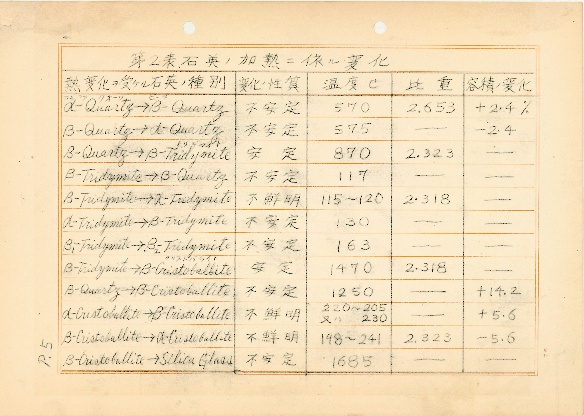 第2表石英ノ加熱ニ依ル変化
熱変化ヲ受ケル石英ノ種別 変化ノ性質 温度C 比重 容積ノ変化
α-Quartz→β-Quartz 不安定 570 2.653 +2.4%
β-Quartz→α-Quartz 不安定 575 — -2.4
β-Quartz→β-Tridymite 安定 870 2.323 —
β-Tridymite→β-Quartz 不安定 117 — —
β-Tridymite→α-Tridymite 不鮮明 115~120 2.318 —
α-Tridymite→β-Tridymite 不安定 130 — —
β1-Tridymite→β2-Tridymite 不安定 163 — —
β-Tridymite→β-Cristoballite 安定 1470 2.318 —
β-Quartz→β-Cristoballite 不安定 1250 — +14.2
α-Cristoballite→β-Cristoballite 不鮮明 220~205 又ハ 230 — +5.6
β-Cristoballite→α-Cristoballite 不鮮明 198~241 2.323 -5.6
β-Cristoballite→Silica Glass 不安定 1685 — —
P.5